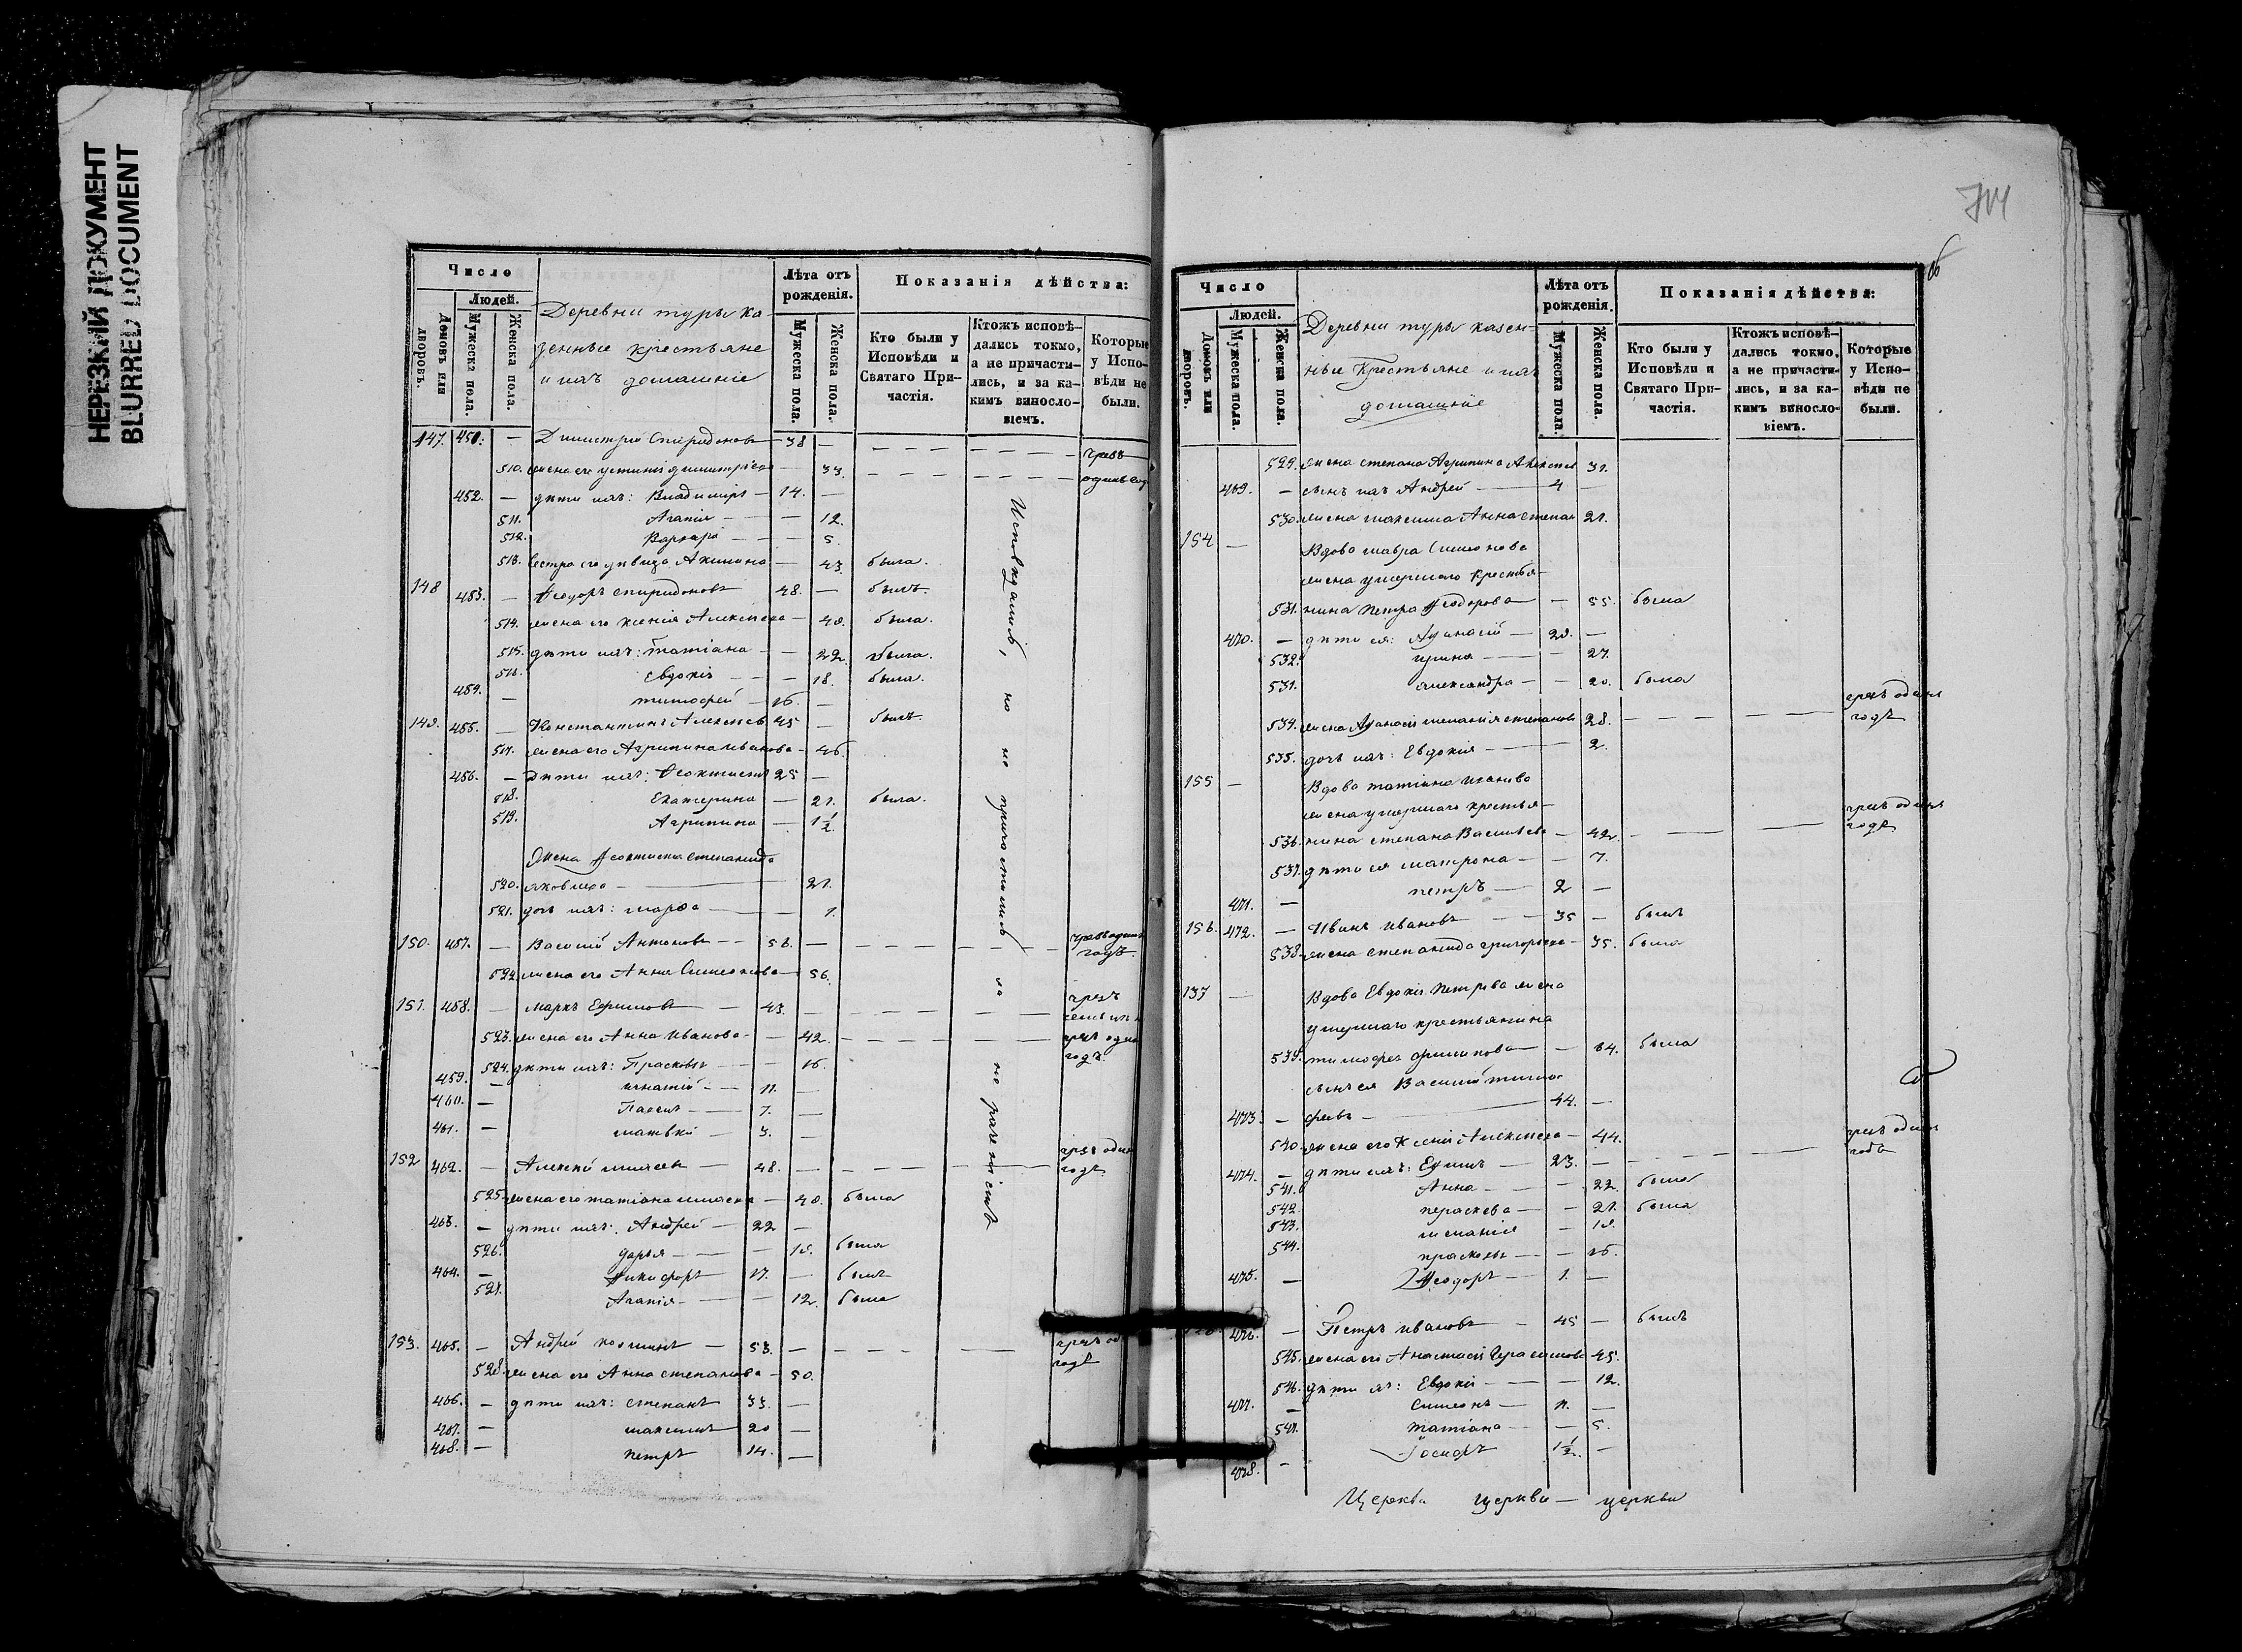 НЕРЕЗКИЙ ДОКУМЕНТ
BLURRED DOCUMENT
Число
Людей.
Домовъ или дворовъ.
Мужеска пола.
Женска пола.
Деревни туры ка
зенные крестьяне
и ихъ домашніе
Лѣта отъ рожденія.
Мужеска пола.
Женска пола.
Показанія дѣйства:
Кто были у Исповѣди и Святаго Причастія.
Ктожъ исповѣдались токмо, а не причастились, и за какимъ винословіемъ.
Которые у Исповѣди не были.
147. 451. — Димитрій Спиридоновъ — 38 —
510. жена его устинія димитріева — 33.
452. — дѣти ихъ: Владиміръ — 14. —
511. Агапія — — 12.
512. Варвара — — 5.
513. Сестра его дѣвица Акилина — 43. была.
148 453. — Ѳеодоръ спиридоновъ 48. — былъ.
514. жена его ксенія Алексѣева — 40. была.
515. дѣти ихъ: татіана — — 22. была.
516. Евдокія — — 18. была.
454. — тимофей — 16. —
149. 455. — Константинъ Алексѣевъ 45 — былъ.
517. жена его Агрипина иванова — 46.
456. — дѣти ихъ: Ѳеоктистъ 25 —
518. Екатерина — 21. была.
519. Агрипина — 1 1/2
Жена Ѳеоктиста степанида
520. яковлева — 21.
521. дочь ихъ: марѳа — 1.
150. 457. — Василій Антоновъ — 58. — чрезъ одинъ годъ.
522. жена его Анна Симеонова — 56.
151. 458. — маркъ Ефимовъ — 43. — чрезъ
523. жена его Анна иванова — — 42.
524. дѣти ихъ: Прасковья — 16.
459. — игнатій — 11. —
460. — Павелъ — 7. —
461. — матвей — 3. —
152 462. — Алексій — 48. —
525. жена его татіана — 40. была
463. — дѣти ихъ: Андрей — 22 —
526. дарья — — 18. была
464. — Никифоръ — 17. — былъ
527. Агапія — — 12. была
153. 465. — Андрей — 53. —
528. жена его Анна степанова — 50.
466. — дѣти ихъ: степанъ 33. —
467. — максимъ 20 —
468. — петръ 14. —
Исповѣдались, но не причастились по не раченію
714
Число
Людей.
Домовъ или дворовъ.
Мужеска пола.
Женска пола.
Деревни туры казен-
ные крестьяне и ихъ
домашніе
Лѣта отъ рожденія.
Мужеска пола.
Женска пола.
Показанія дѣйства:
Кто были у Исповѣди и Святаго Причастія.
Ктожъ исповѣдались токмо, а не причастились, и за какимъ винословіемъ.
Которые у Исповѣди не были.
529. жена степана Агрипина 31.
469. — сынъ ихъ Андрей — 4 —
530. жена максима Анна степан 21.
154 — Вдова мавра Симеонова
жена умершаго крестья-
531. нина петра Ѳеодорова — — 55. была
470. — дѣти ея: Аѳанасій — 28. —
532. ирина — — 27.
531. александра — — 20. была
534. жена Аѳанасія меланія степанова 28. чрезъ одинъ годъ
535. дочь ихъ: Евдокія — 2.
155 — Вдова татіана иванова
жена умершаго крестья-
536. нина степана Васильева — 42. чрезъ одинъ годъ
537. дѣти ея матрона — — 7.
471. — петръ — 2 —
156. 472. — Иванъ ивановъ — 35 — былъ
538. жена степанида григорьева — 35. была
157 — Вдова Евдокія петрова жена
умершаго крестьянина
539. тимофея филипова — — 84. была
сынъ ея Василій тимо-
473. — феевъ — 44. —
540. жена его Ксенія Алексѣева — 44.
474. — дѣти ихъ: Ефимъ — 23. — чрезъ одинъ годъ
541. Анна — — 22. была
542. параскева — — 21. была
543. меланія — 18.
544. прасковья — — 16.
475. — Ѳеодоръ — 1. —
476. — Петръ ивановъ — 45 — былъ
545. жена его Анастасія Герасимова 45.
546. дѣти ихъ: Евдокія — — 12.
477. — Симеонъ — —
547. татіана — — 5.
478. — Іосифъ 1 1/2. —
Церкви церкви — церкви